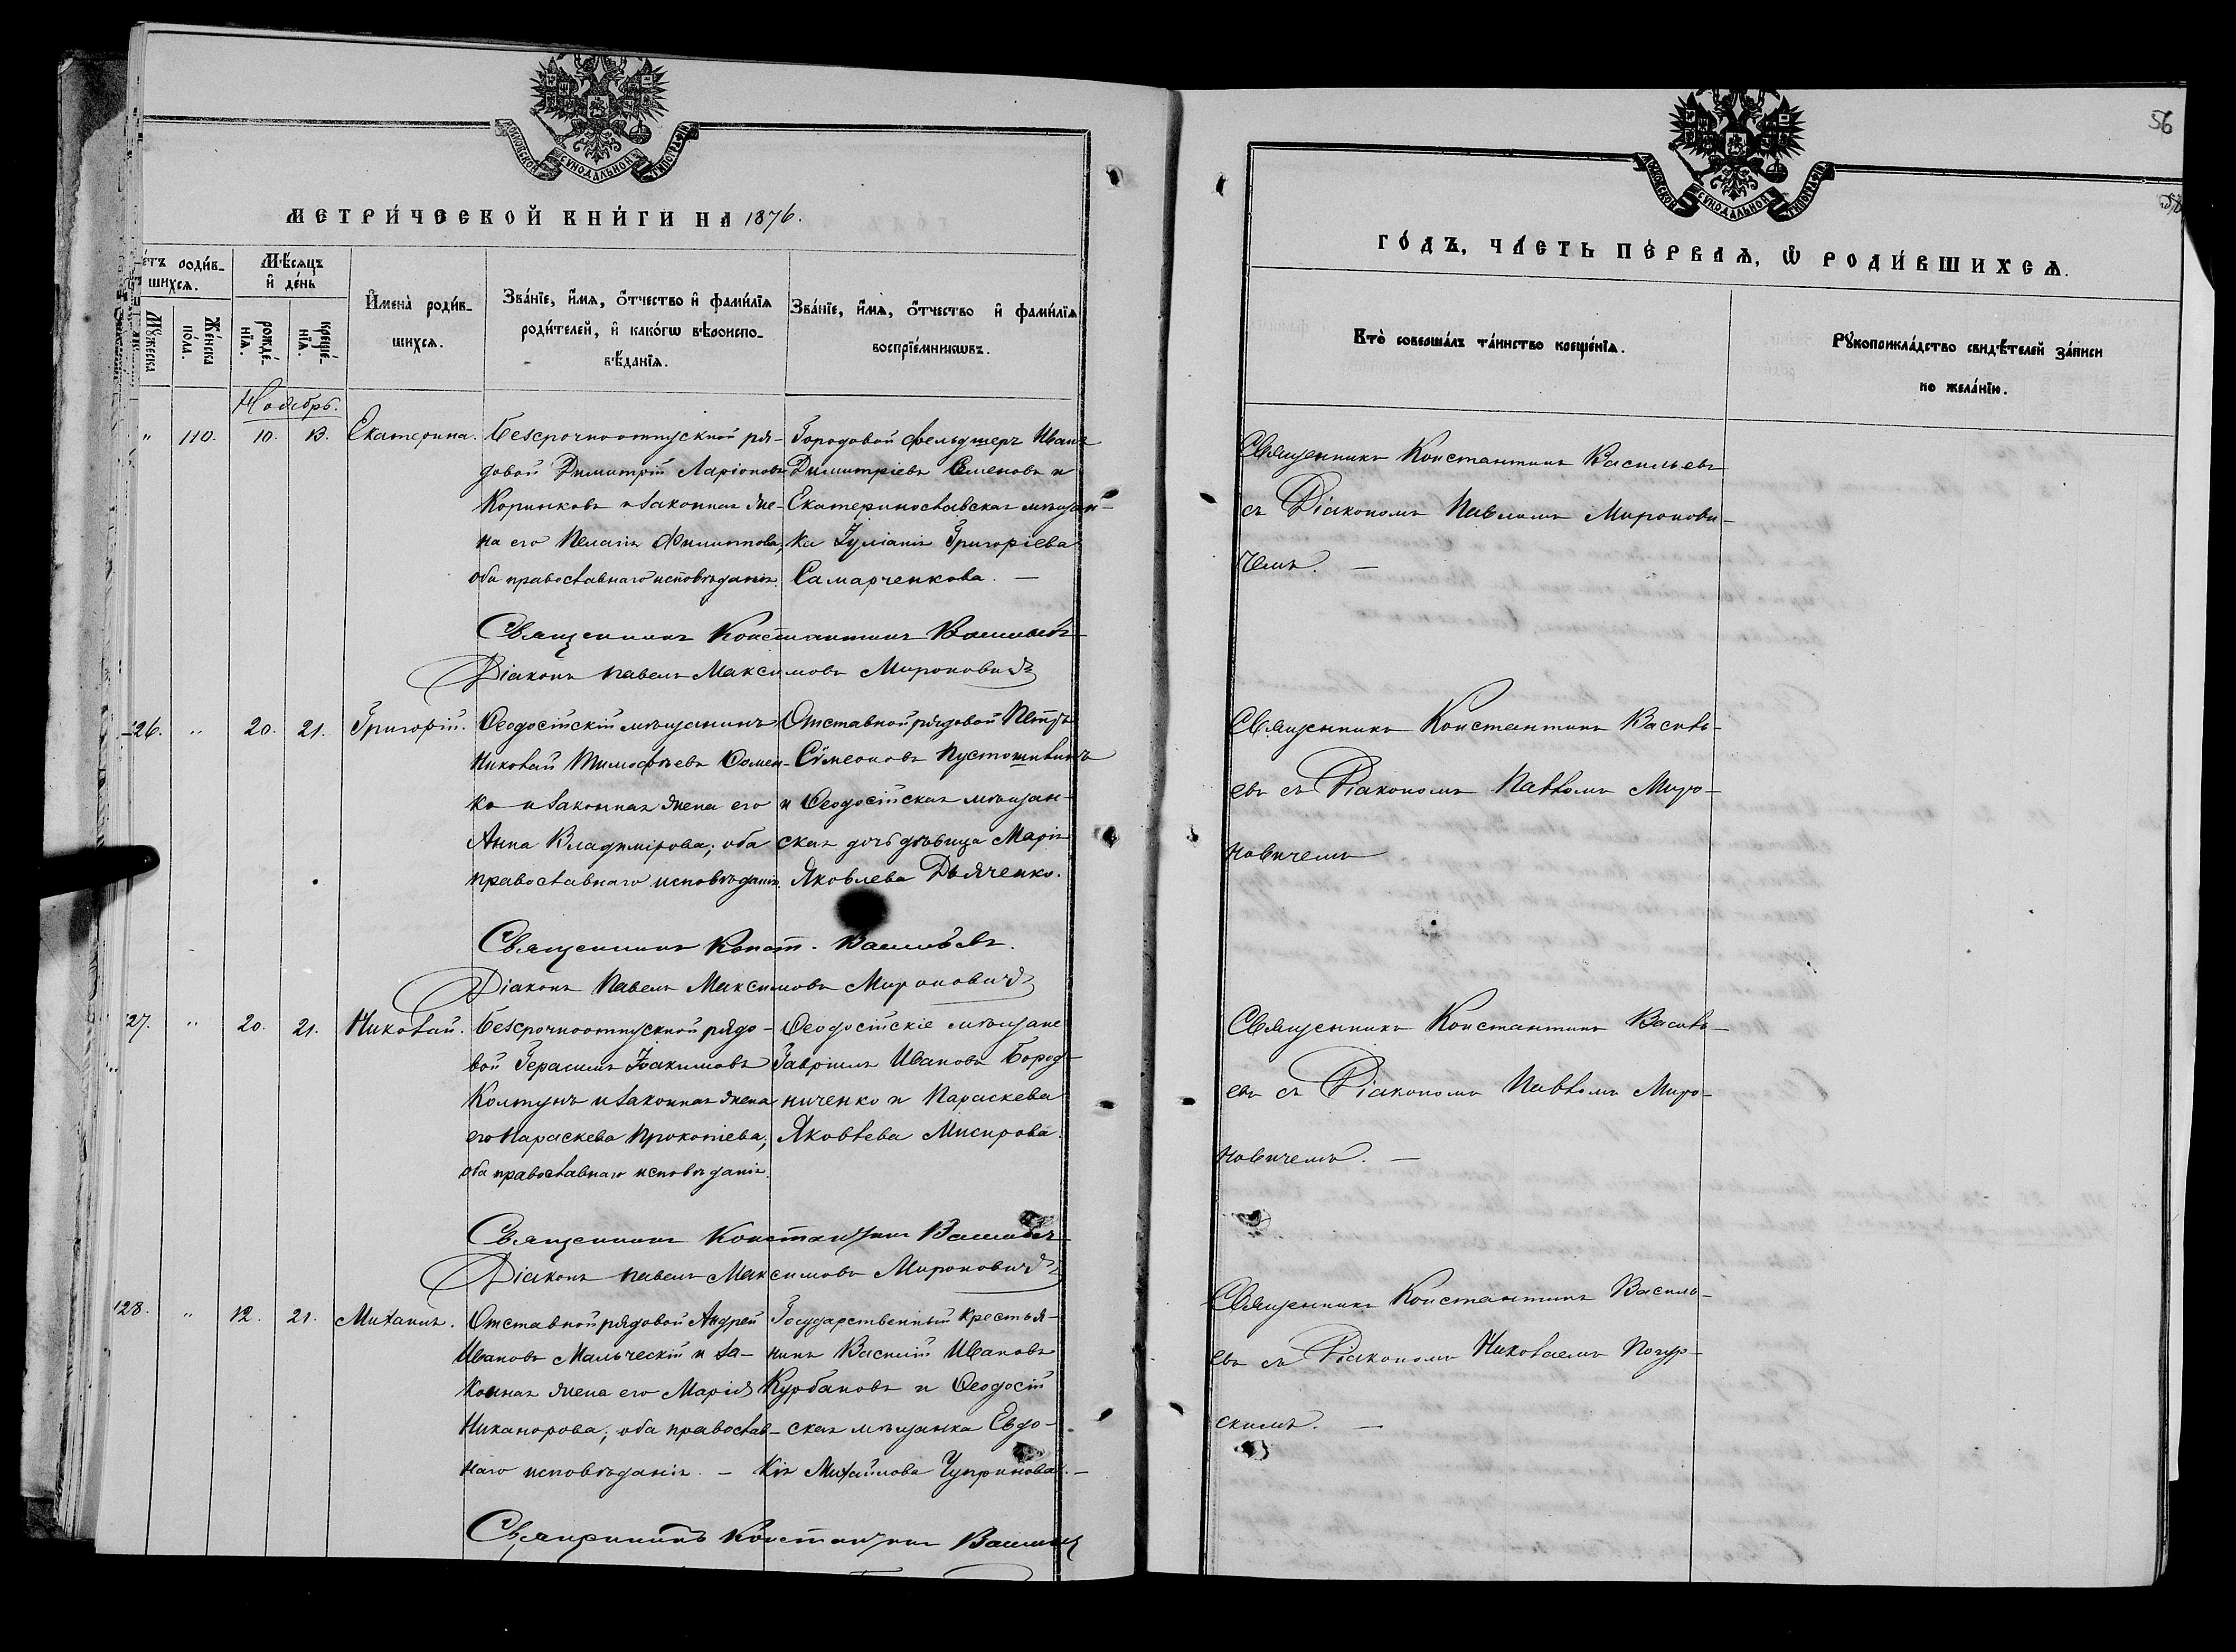 МОСКОВСКОЙ СѴНОДАЛЬНОЙ ТИПОГРАФІИ
МЕТРИ́ЧЕСКОЙ КНИ́ГИ НА 1876.
роди́в-
шихсѧ.
Мѣ́сѧцъ
и҆ де́нь
И҆мена̀ роди́в-
шихсѧ.
Зва́нїе, и҆́мѧ, ѻ҆́тчество и҆ фами́лїѧ
роди́телей, и҆ како́гѡ вѣроиспо-
вѣ́данїѧ.
Зва́нїе, и҆́мѧ, ѻ҆́тчество и҆ фами́лїѧ
воспрїе́мникѡвъ.
Мꙋ́жеска
Же́нска
по́ла.
рожде́-
нїѧ.
креще́-
нїѧ.
Ноябрь.
" 110. 10. 13. Екатерина.
Безсрочноотпускной ря-
довой Димитрій Ларіоновъ
Коринковъ и законная же-
на его Пелагія Филиппова,
оба православнаго исповѣданія.
Городовой фельдшеръ Иванъ
Димитріевъ Семеновъ и
Екатеринославская мѣщан-
ка Іуліанія Григоріева
Самарченкова. —
Священникъ Константинъ Васильевъ
Діаконъ Павелъ Максимовъ Мироновичъ
126. " 20. 21. Григорій.
Ѳеодосійскій мѣщанинъ
Николай Тимоѳѣевъ Ѳомен-
ко и законная жена его
Анна Владимірова; оба
православнаго исповѣданія.
Отставной рядовой Петръ
Сѵмеоновъ Пустошивинъ
и Ѳеодосійская мѣщан-
ская дочь дѣвица Марія
Яковлева Дьяченко.
Священникъ Конст. Васильевъ.
Діаконъ Павелъ Максимовъ Мироновичъ
127. " 20. 21. Николай.
Безсрочноотпускной рядо-
вой Герасимъ Іоакимовъ
Колтунъ и законная жена
его Параскева Прокопіева;
оба православнаго исповѣданія.
Ѳеодосійскіе мѣщане
Гавріилъ Ивановъ Город-
ниченко и Параскева
Яковлева Мисирова.
Священникъ Константинъ Васильевъ
Діаконъ Павелъ Максимовъ Мироновичъ
128. " 12. 21. Михаилъ.
Отставной рядовой Андрей
Ивановъ Мальческій и за-
конная жена его Марія
Никанорова; оба православ-
наго исповѣданія. —
Государственный крестья-
нинъ Василій Ивановъ
Курбановъ и Ѳеодосій
ская мѣщанка Евдо-
кія Михайлова Чупринова. —
Священникъ Константинъ Васильевъ
56
МОСКОВСКОЙ СѴНОДАЛЬНОЙ ТИПОГРАФІИ
ГО́ДЪ, ЧА́СТЬ ПЕ́РВАѦ, Ѡ҆ РОДИ́ВШИХСѦ.
Кто̀ соверша́лъ та́инство креще́нїѧ.
Рꙋкоприкла́дство свидѣ́телей за́писи
по жела́нїю.
Священникъ Константинъ Васильевъ
съ Діакономъ Павломъ Миронови-
чемъ. —
Священникъ Константинъ Василь-
евъ съ Діакономъ Павломъ Миро-
новичемъ
Священникъ Константинъ Василь-
евъ съ Діакономъ Павломъ Миро-
новичемъ. —
Священникъ Константинъ Василь-
евъ съ Діакономъ Николаемъ Погур-
скимъ. —